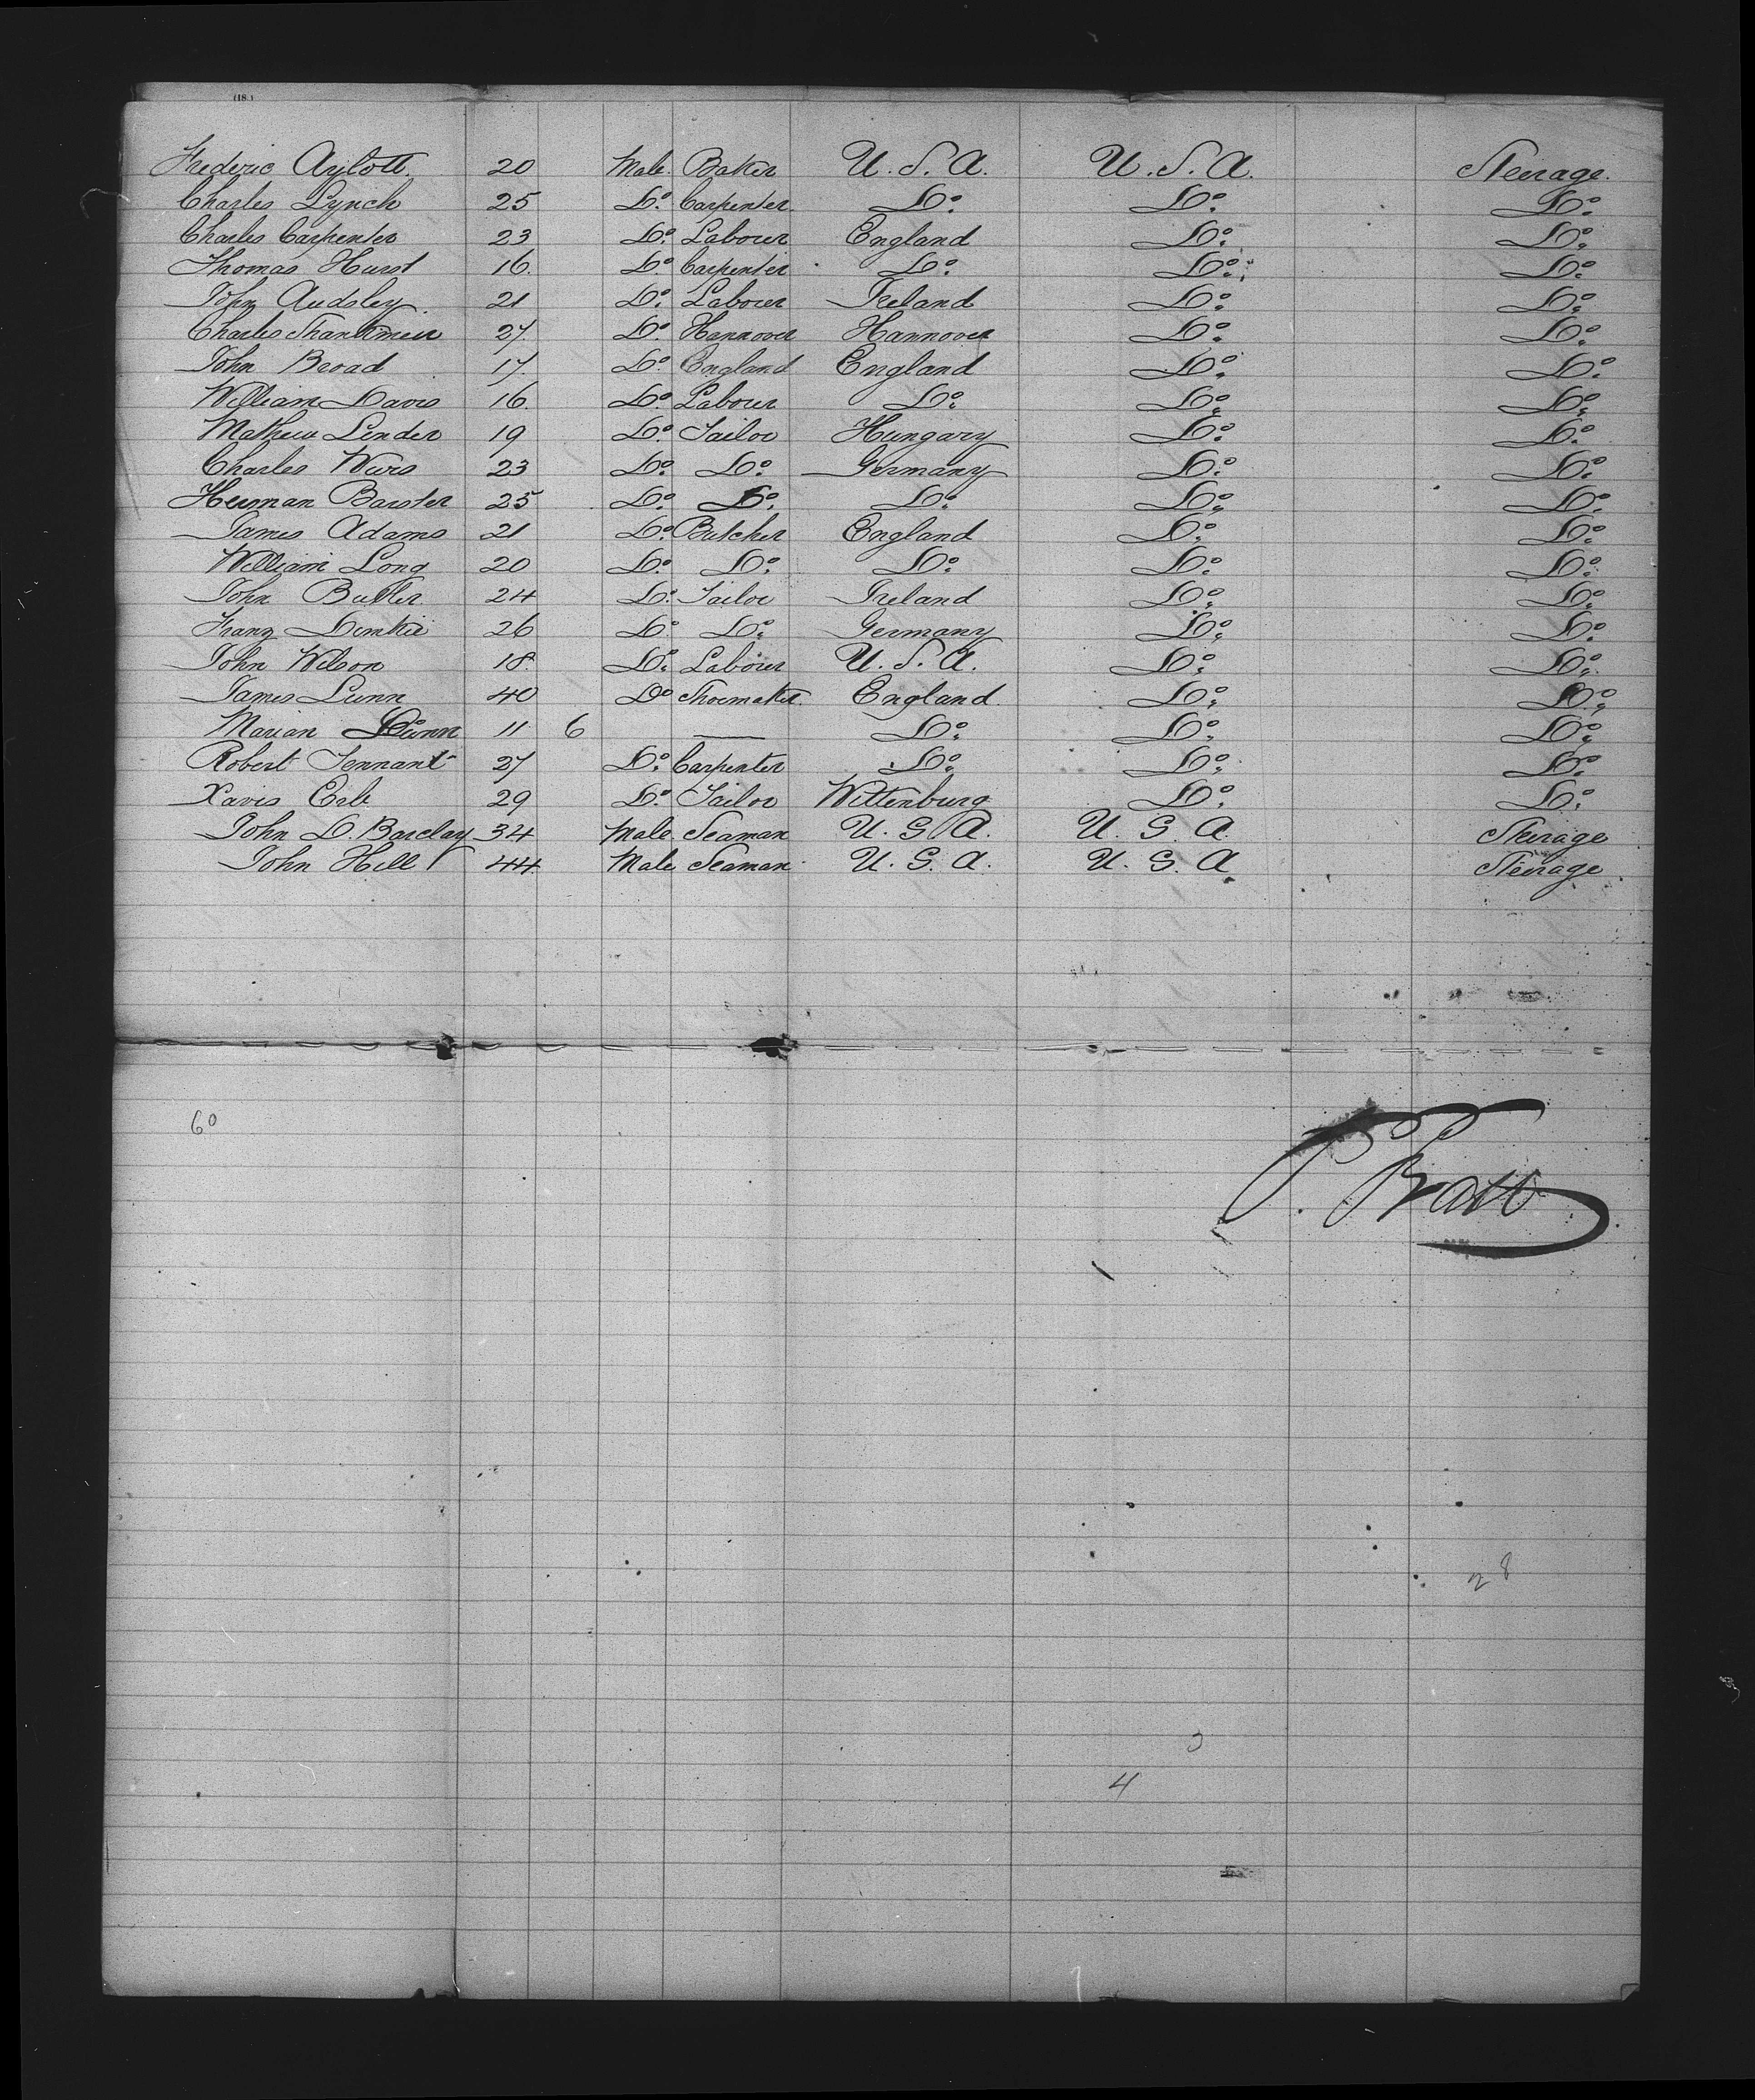 (18.)
Frederic Aylott. 20 Male. Baker U.S.A. U.S.A. Steerage.
Charles Lynch 25 Do. Carpenter. Do. Do. Do.
Charles Carpenter 23 Do. Labourer England Do. Do.
Thomas Hurst 16. Do. Carpenter Do. Do. Do.
John Audsley 21 Do. Labourer Ireland Do. Do.
Charles 27. Do. Hannover Hannover Do. Do.
John Broad 17. Do. England England Do. Do.
William Davis 16. Do. Labour Do. Do. Do.
Mathew Lender 19 Do. Tailor Hungary Do. Do.
Charles Wurs 23 Do. Do. Germany Do. Do.
Herman Barster 25 Do. Do. Do. Do. Do.
James Adams 21 Do. Butcher England Do. Do.
William Long 20 Do. Do. Do. Do. Do.
John Butler 24 Do. Tailor Ireland Do. Do.
Franz Demkie 26 Do. Do. Germany Do. Do.
John Wilson 18. Do. Labourer U.S.A. Do. Do.
James Lunn 40 Do Shoemaker. England. Do. Do.
Marian Lunn 11 6 — Do. Do. Do.
Robert Tennant 27 Do. Carpenter Do. Do. Do.
Xavis Erb 29 Do. Tailor Wittenburg Do. Do.
John D. Barclay 34 Male. Seaman U.S.A. U.S.A. Steerage
John Hill 44 Male Seaman U.S.A. U.S.A. Steerage
60
28
3
4